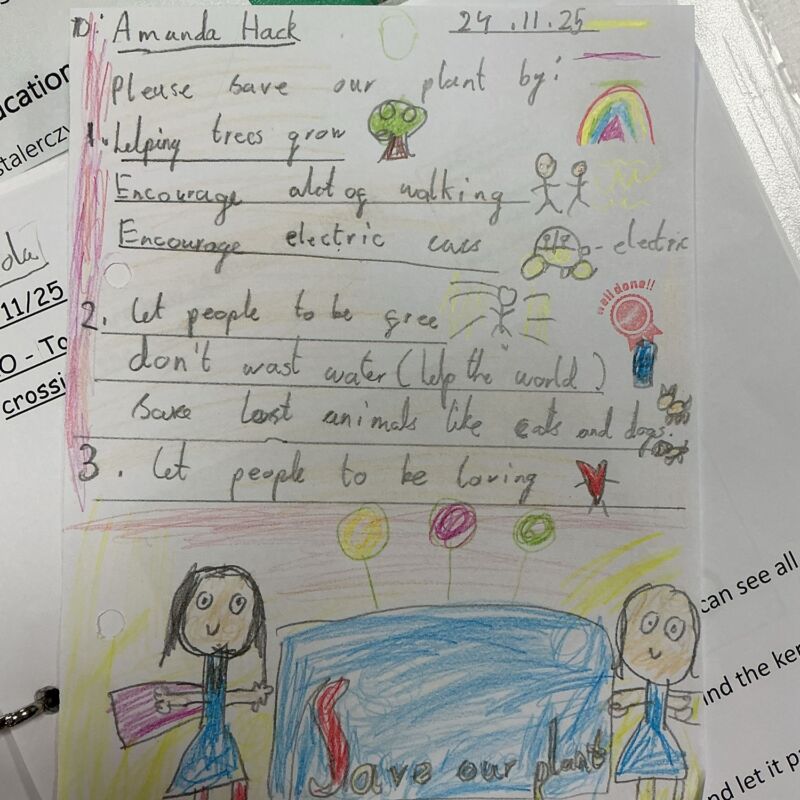 TO: Amanda Hack
24.11.25
please save our plant by:
1. helping trees grow
Encourage alot of walking
Encourage electric cars - electric
2. let people to be free
well done!!
don't wast water (help the world)
save lost animals like cats and dogs.
3. let people to be loving
Save our plant
ucation
stalerczy
da
11/25
O - To
crossi
can see all
and the ker
and let it pa